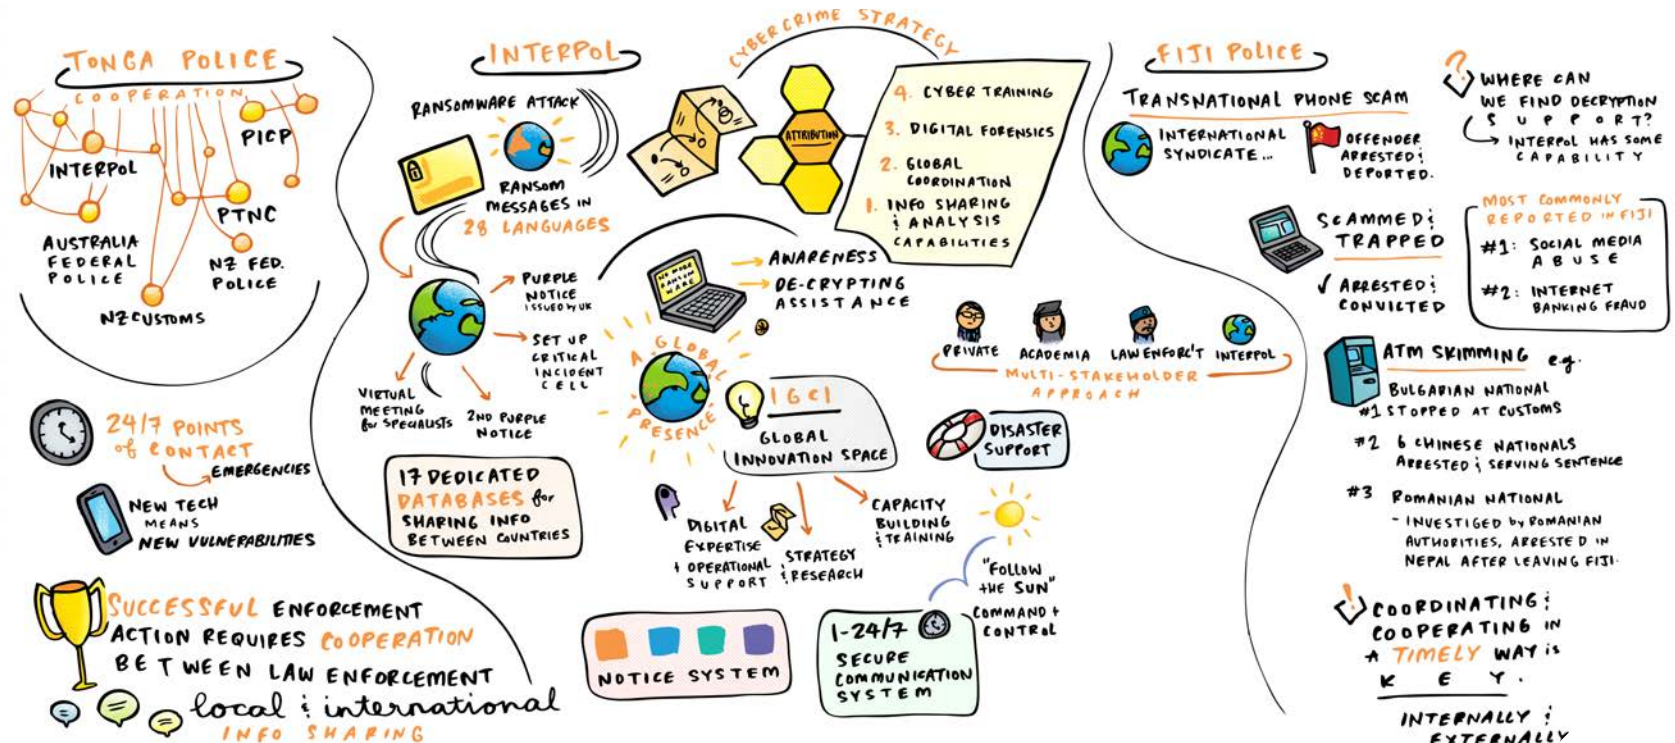 TONGA POLICE
COOPERATION
PICP
INTERPOL
PTNC
AUSTRALIA
FEDERAL
POLICE
NZ FED.
POLICE
NZ CUSTOMS
24/7 POINTS
of CONTACT
EMERGENCIES
NEW TECH
MEANS
NEW VULNERABILITIES
SUCCESSFUL ENFORCEMENT
ACTION REQUIRES COOPERATION
BETWEEN LAW ENFORCEMENT
local & international
INFO SHARING
INTERPOL
RANSOMWARE ATTACK
RANSOM
MESSAGES IN
28 LANGUAGES
PURPLE
NOTICE
ISSUED by UK
SET UP
CRITICAL
INCIDENT
CELL
VIRTUAL
MEETING
for SPECIALISTS
2ND PURPLE
NOTICE
17 DEDICATED
DATABASES for
SHARING INFO
BETWEEN COUNTRIES
CYBERCRIME STRATEGY
ATTRIBUTION
4. CYBER TRAINING
3. DIGITAL FORENSICS
2. GLOBAL
COORDINATION
1. INFO SHARING
& ANALYSIS
CAPABILITIES
NO MORE
RANSOM
WARE
AWARENESS
DE-CRYPTING
ASSISTANCE
A GLOBAL
PRESENCE
IGCI
GLOBAL
INNOVATION SPACE
DIGITAL
EXPERTISE
+ OPERATIONAL
SUPPORT
STRATEGY
& RESEARCH
CAPACITY
BUILDING
& TRAINING
PRIVATE
ACADEMIA
LAW ENFORC'T
INTERPOL
MULTI-STAKEHOLDER
APPROACH
DISASTER
SUPPORT
"FOLLOW
THE SUN"
COMMAND +
CONTROL
NOTICE SYSTEM
I-24/7
SECURE
COMMUNICATION
SYSTEM
FIJI POLICE
TRANSNATIONAL PHONE SCAM
INTERNATIONAL
SYNDICATE...
OFFENDER
ARRESTED &
DEPORTED.
SCAMMED &
TRAPPED
✓ ARRESTED &
CONVICTED
? WHERE CAN
WE FIND DECRYPTION
SUPPORT?
INTERPOL HAS SOME
CAPABILITY
MOST COMMONLY
REPORTED IN FIJI
#1: SOCIAL MEDIA
ABUSE
#2: INTERNET
BANKING FRAUD
ATM SKIMMING e.g.
BULGARIAN NATIONAL
#1 STOPPED AT CUSTOMS
#2 6 CHINESE NATIONALS
ARRESTED & SERVING SENTENCE
#3 ROMANIAN NATIONAL
- INVESTIGED by ROMANIAN
AUTHORITIES, ARRESTED IN
NEPAL AFTER LEAVING FIJI.
! COORDINATING &
COOPERATING IN
A TIMELY WAY is
KEY.
INTERNALLY &
EXTERNALLY